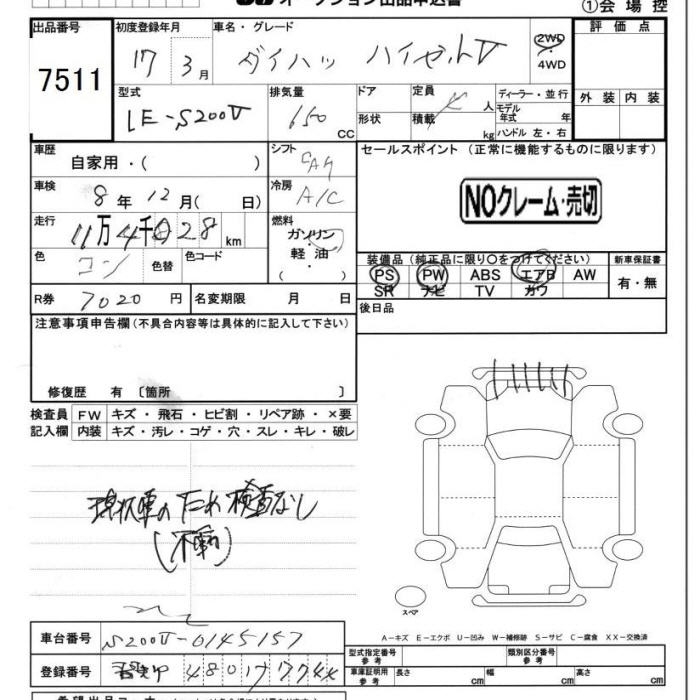 ①会場控
出品番号 7511
初度登録年月 17 3月
車名・グレード ダイハツ ハイゼットV
2WD
・
4WD
評価点
外装 内装
型式 LE-S200V
排気量 650 CC
ドア
形状
定員 人
積載 kg
ディーラー・並行
モデル
年式 年
ハンドル 左・右
車歴 自家用・( )
シフト
車検 8年12月( 日)
冷房 A/C
走行 11万4千 28 km
燃料 ガソリン・軽油・
色
色替
色コード
R券 7020円
名変期限 月 日
セールスポイント (正常に機能するものに限ります)
NOクレーム・売切
装備品 (純正品に限り○をつけてください)
PS PW ABS エアB AW
SR ナビ TV カワ
新車保証書
有・無
後日品
注意事項申告欄 (不具合内容等は具体的に記入して下さい)
修復歴 有 〔箇所 〕
検査員 FW キズ・飛石・ヒビ割・リペア跡・×要
記入欄 内装 キズ・汚レ・コゲ・穴・スレ・キレ・破レ
現状車のため検査なし
(不動)
スペア
A-キズ E-エクボ U-凹み W-補修跡 S-サビ C-腐食 XX-交換済
車台番号 S200V-0145157
登録番号 480
型式指定番号
参考
類別区分番号
参考
車庫証明用
参考
長さ cm 幅 cm 高さ cm